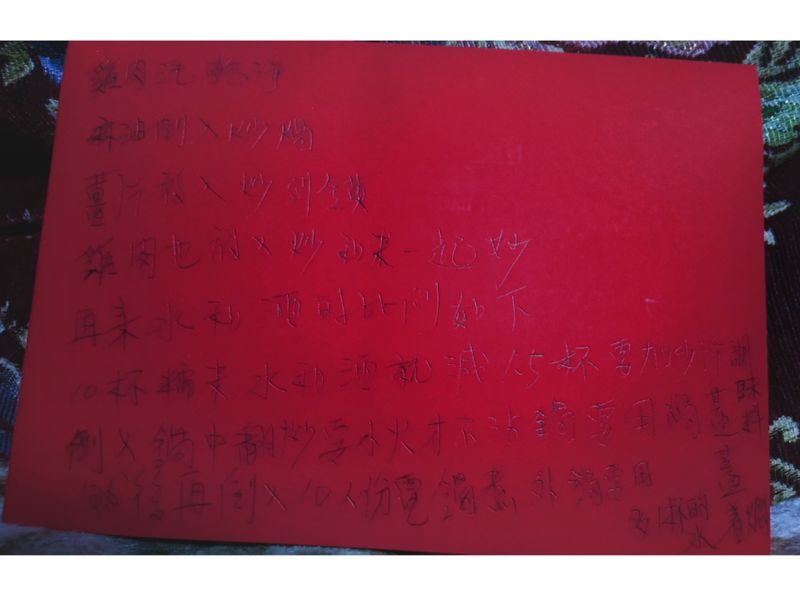 雞肉洗乾淨
麻油倒入炒鍋
薑片放入炒到
雞肉也放入炒和米一起炒
再來水和酒的比例如下
10杯糯米水和酒就減1.5杯要加少許調味料
倒入鍋中翻炒要小火才不沾鍋要用鍋蓋蓋著燜
然後再倒入10人份電鍋煮外鍋要用
1杯的水